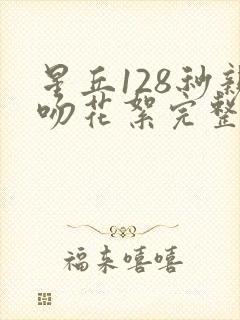 星丘128秒亲
吻花絮完整
福来嘻嘻